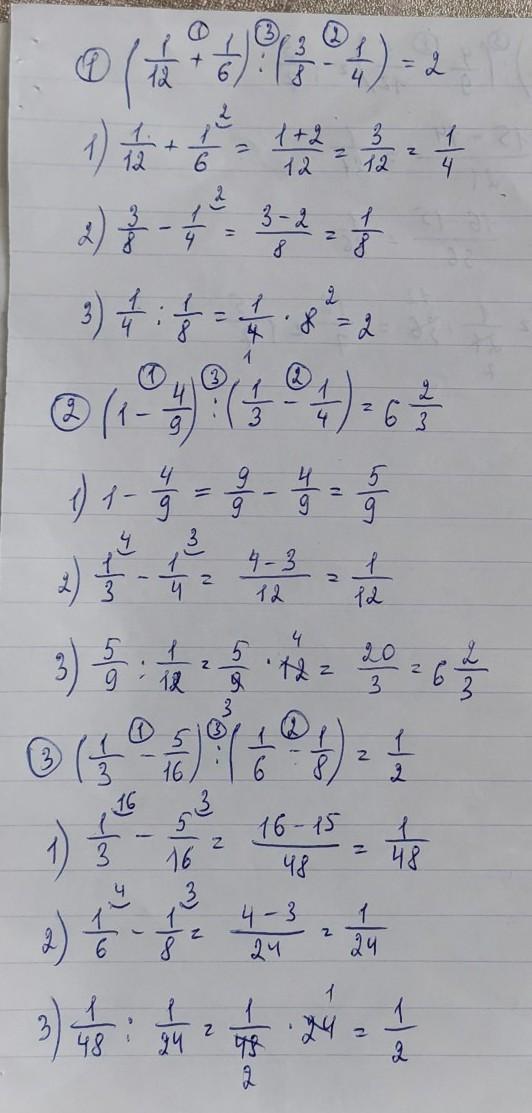 ① (1/12 + 1/6) : (3/8 - 1/4) = 2
1) 1/12 + 1/6 = (1+2)/12 = 3/12 = 1/4
2) 3/8 - 1/4 = (3-2)/8 = 1/8
3) 1/4 : 1/8 = 1/4 · 8 = 2
② (1 - 4/9) : (1/3 - 1/4) = 6 2/3
1) 1 - 4/9 = 9/9 - 4/9 = 5/9
2) 1/3 - 1/4 = (4-3)/12 = 1/12
3) 5/9 : 1/12 = 5/9 · 12 = 20/3 = 6 2/3
③ (1/3 - 5/16) : (1/6 - 1/8) = 1/2
1) 1/3 - 5/16 = (16-15)/48 = 1/48
2) 1/6 - 1/8 = (4-3)/24 = 1/24
3) 1/48 : 1/24 = 1/48 · 24 = 1/2